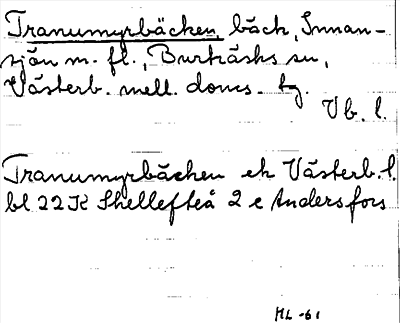 Tranumyrbäcken, bäck, Innan-
sjön m. fl., Burträsks sn,
Västerb. mell. doms. tg.
Vb. l.
Tranumyrbäcken ek Västerb. l.
bl 22 K Skellefteå 2 e Andersfors
ML -61